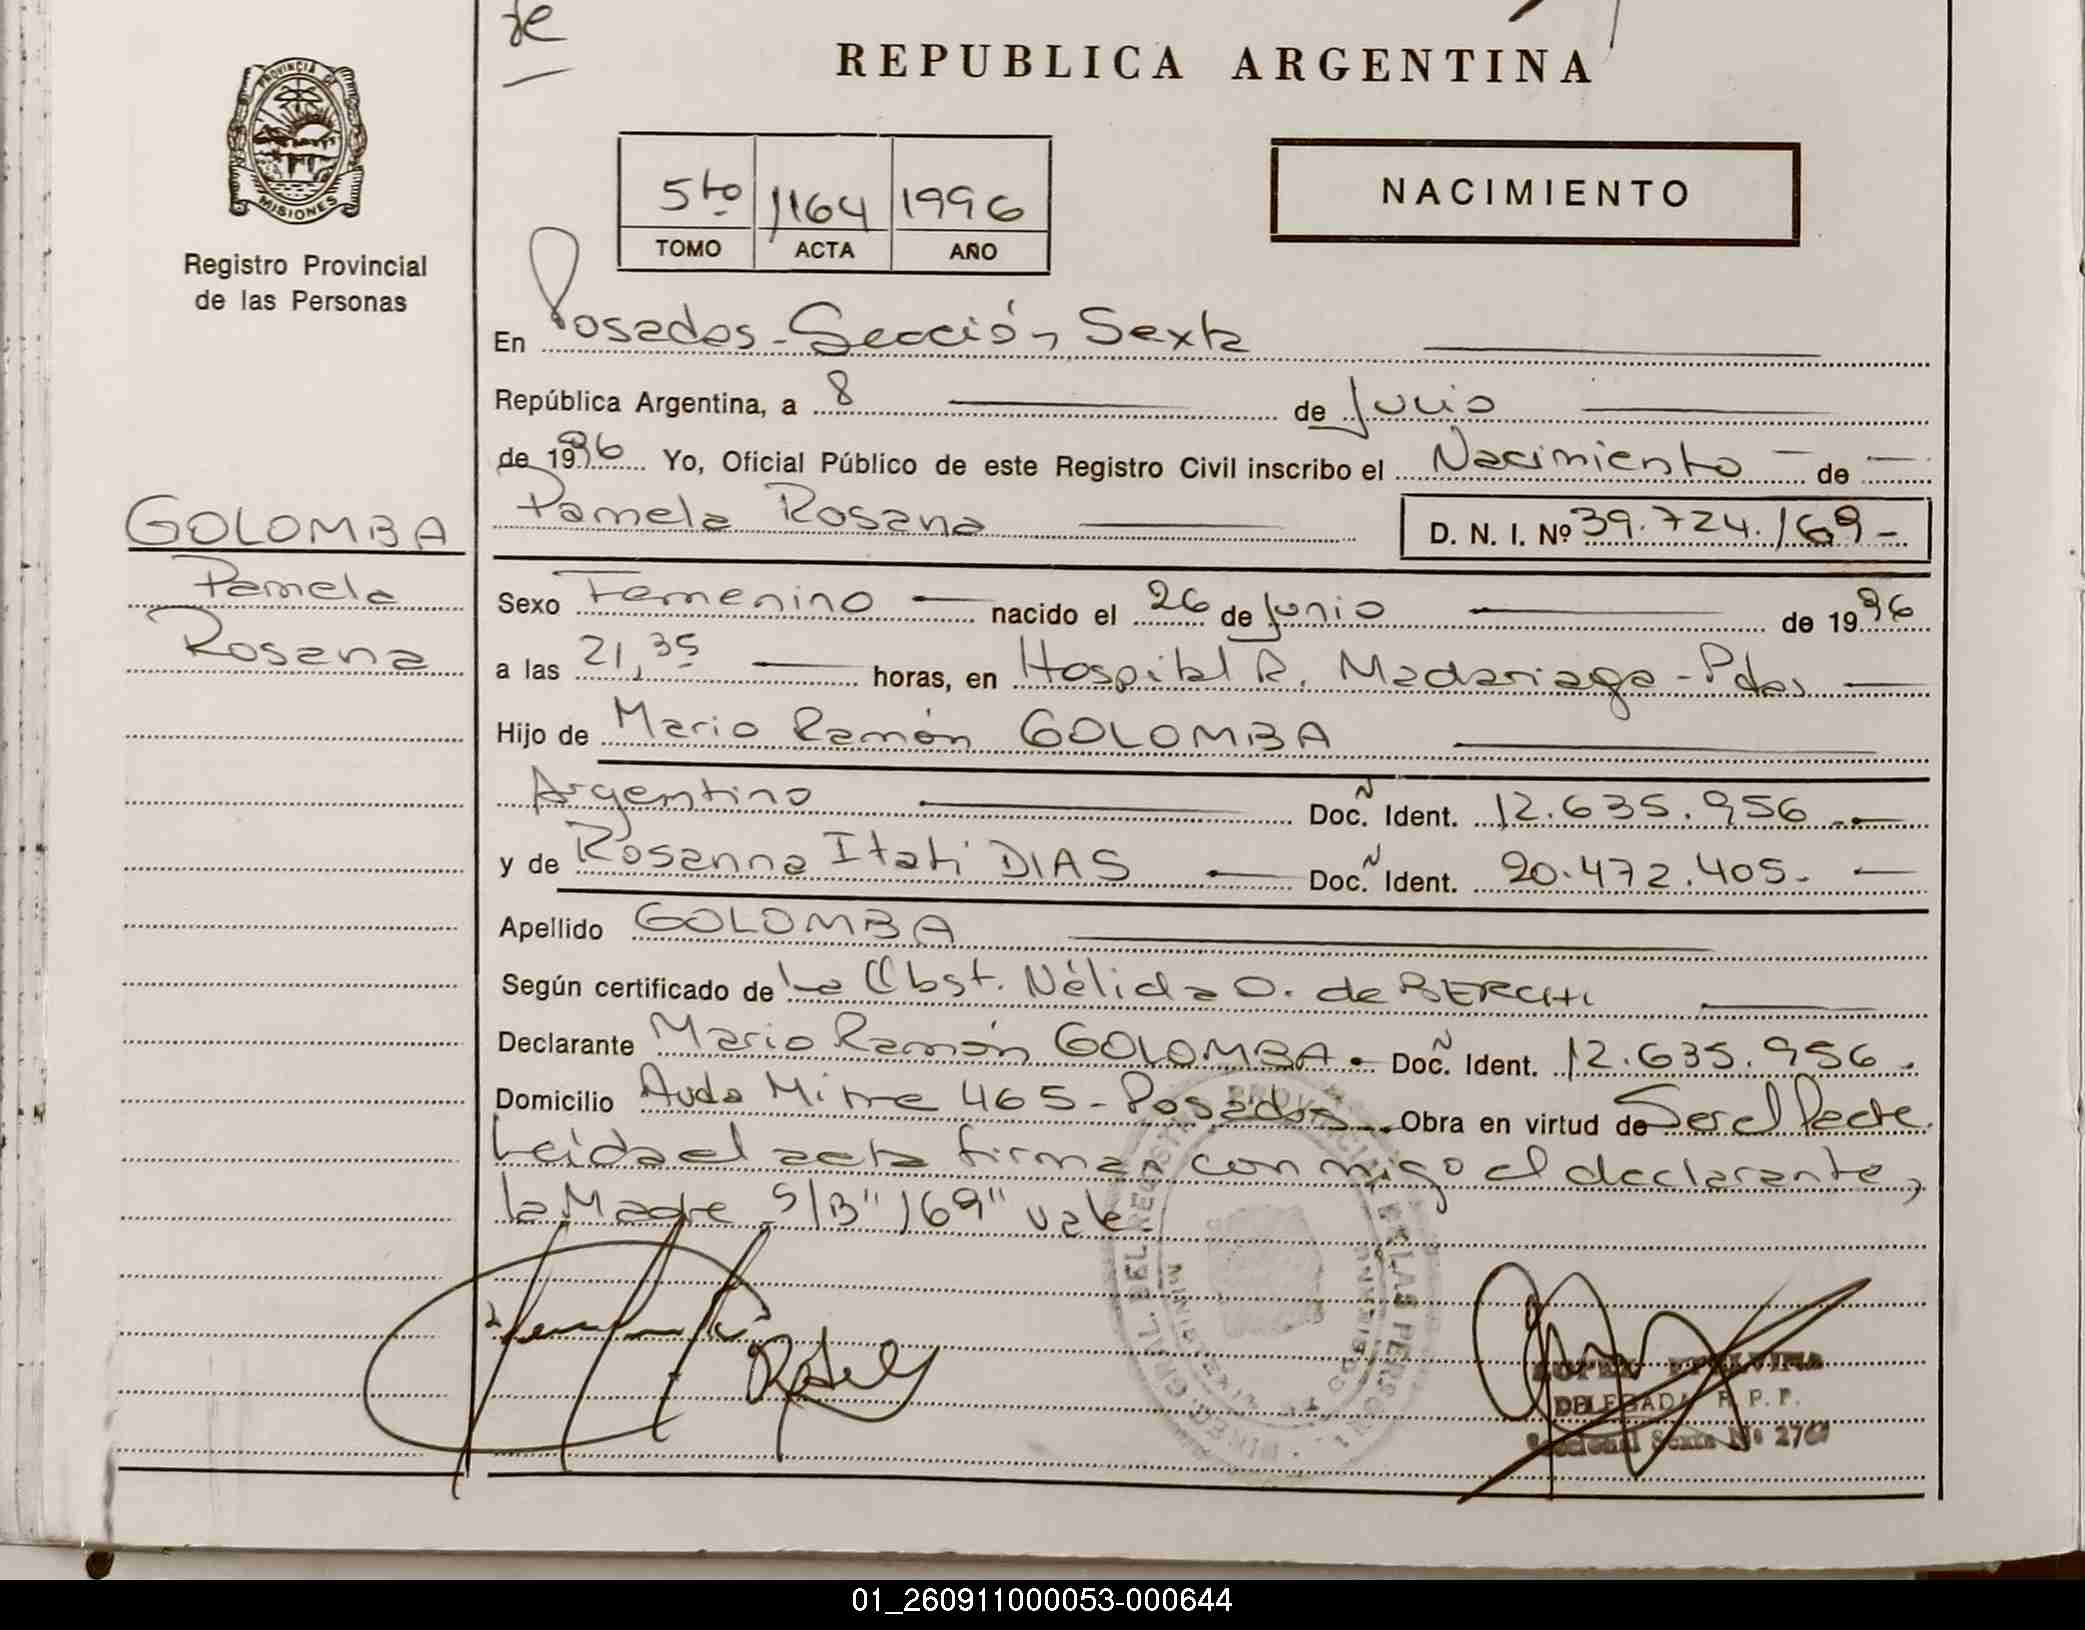 de
REPUBLICA ARGENTINA
PROVINCIA DE
MISIONES
Registro Provincial
de las Personas
5to 1164 1996
TOMO ACTA AÑO
NACIMIENTO
En Posadas - Sección Sexta
República Argentina, a 8 de Julio
de 1996 Yo, Oficial Público de este Registro Civil inscribo el Nacimiento de
Pamela Rosana
D. N. I. Nº 39.724.169-
GOLOMBA
Pamela
Rosana
Sexo Femenino nacido el 26 de Junio de 1996
a las 21,35 horas, en Hospital R. Madariaga - Pdas
Hijo de Mario Ramón GOLOMBA
Argentino Doc. N Ident. 12.635.956
y de Rosanna Itati DIAS Doc. N Ident. 20.472.405.
Apellido GOLOMBA
Según certificado de La Obst. Nélida O. de BERCHI
Declarante Mario Ramón GOLOMBA. Doc. N Ident. 12.635.956.
Domicilio Avda Mitre 465 - Posadas. Obra en virtud de Ser el Padre.
Leida el acta firman conmigo el declarante,
la Madre S/B "169" vale
DELEGADA R. P. P.
Seccional Sexta Nº 276
01_260911000053-000644